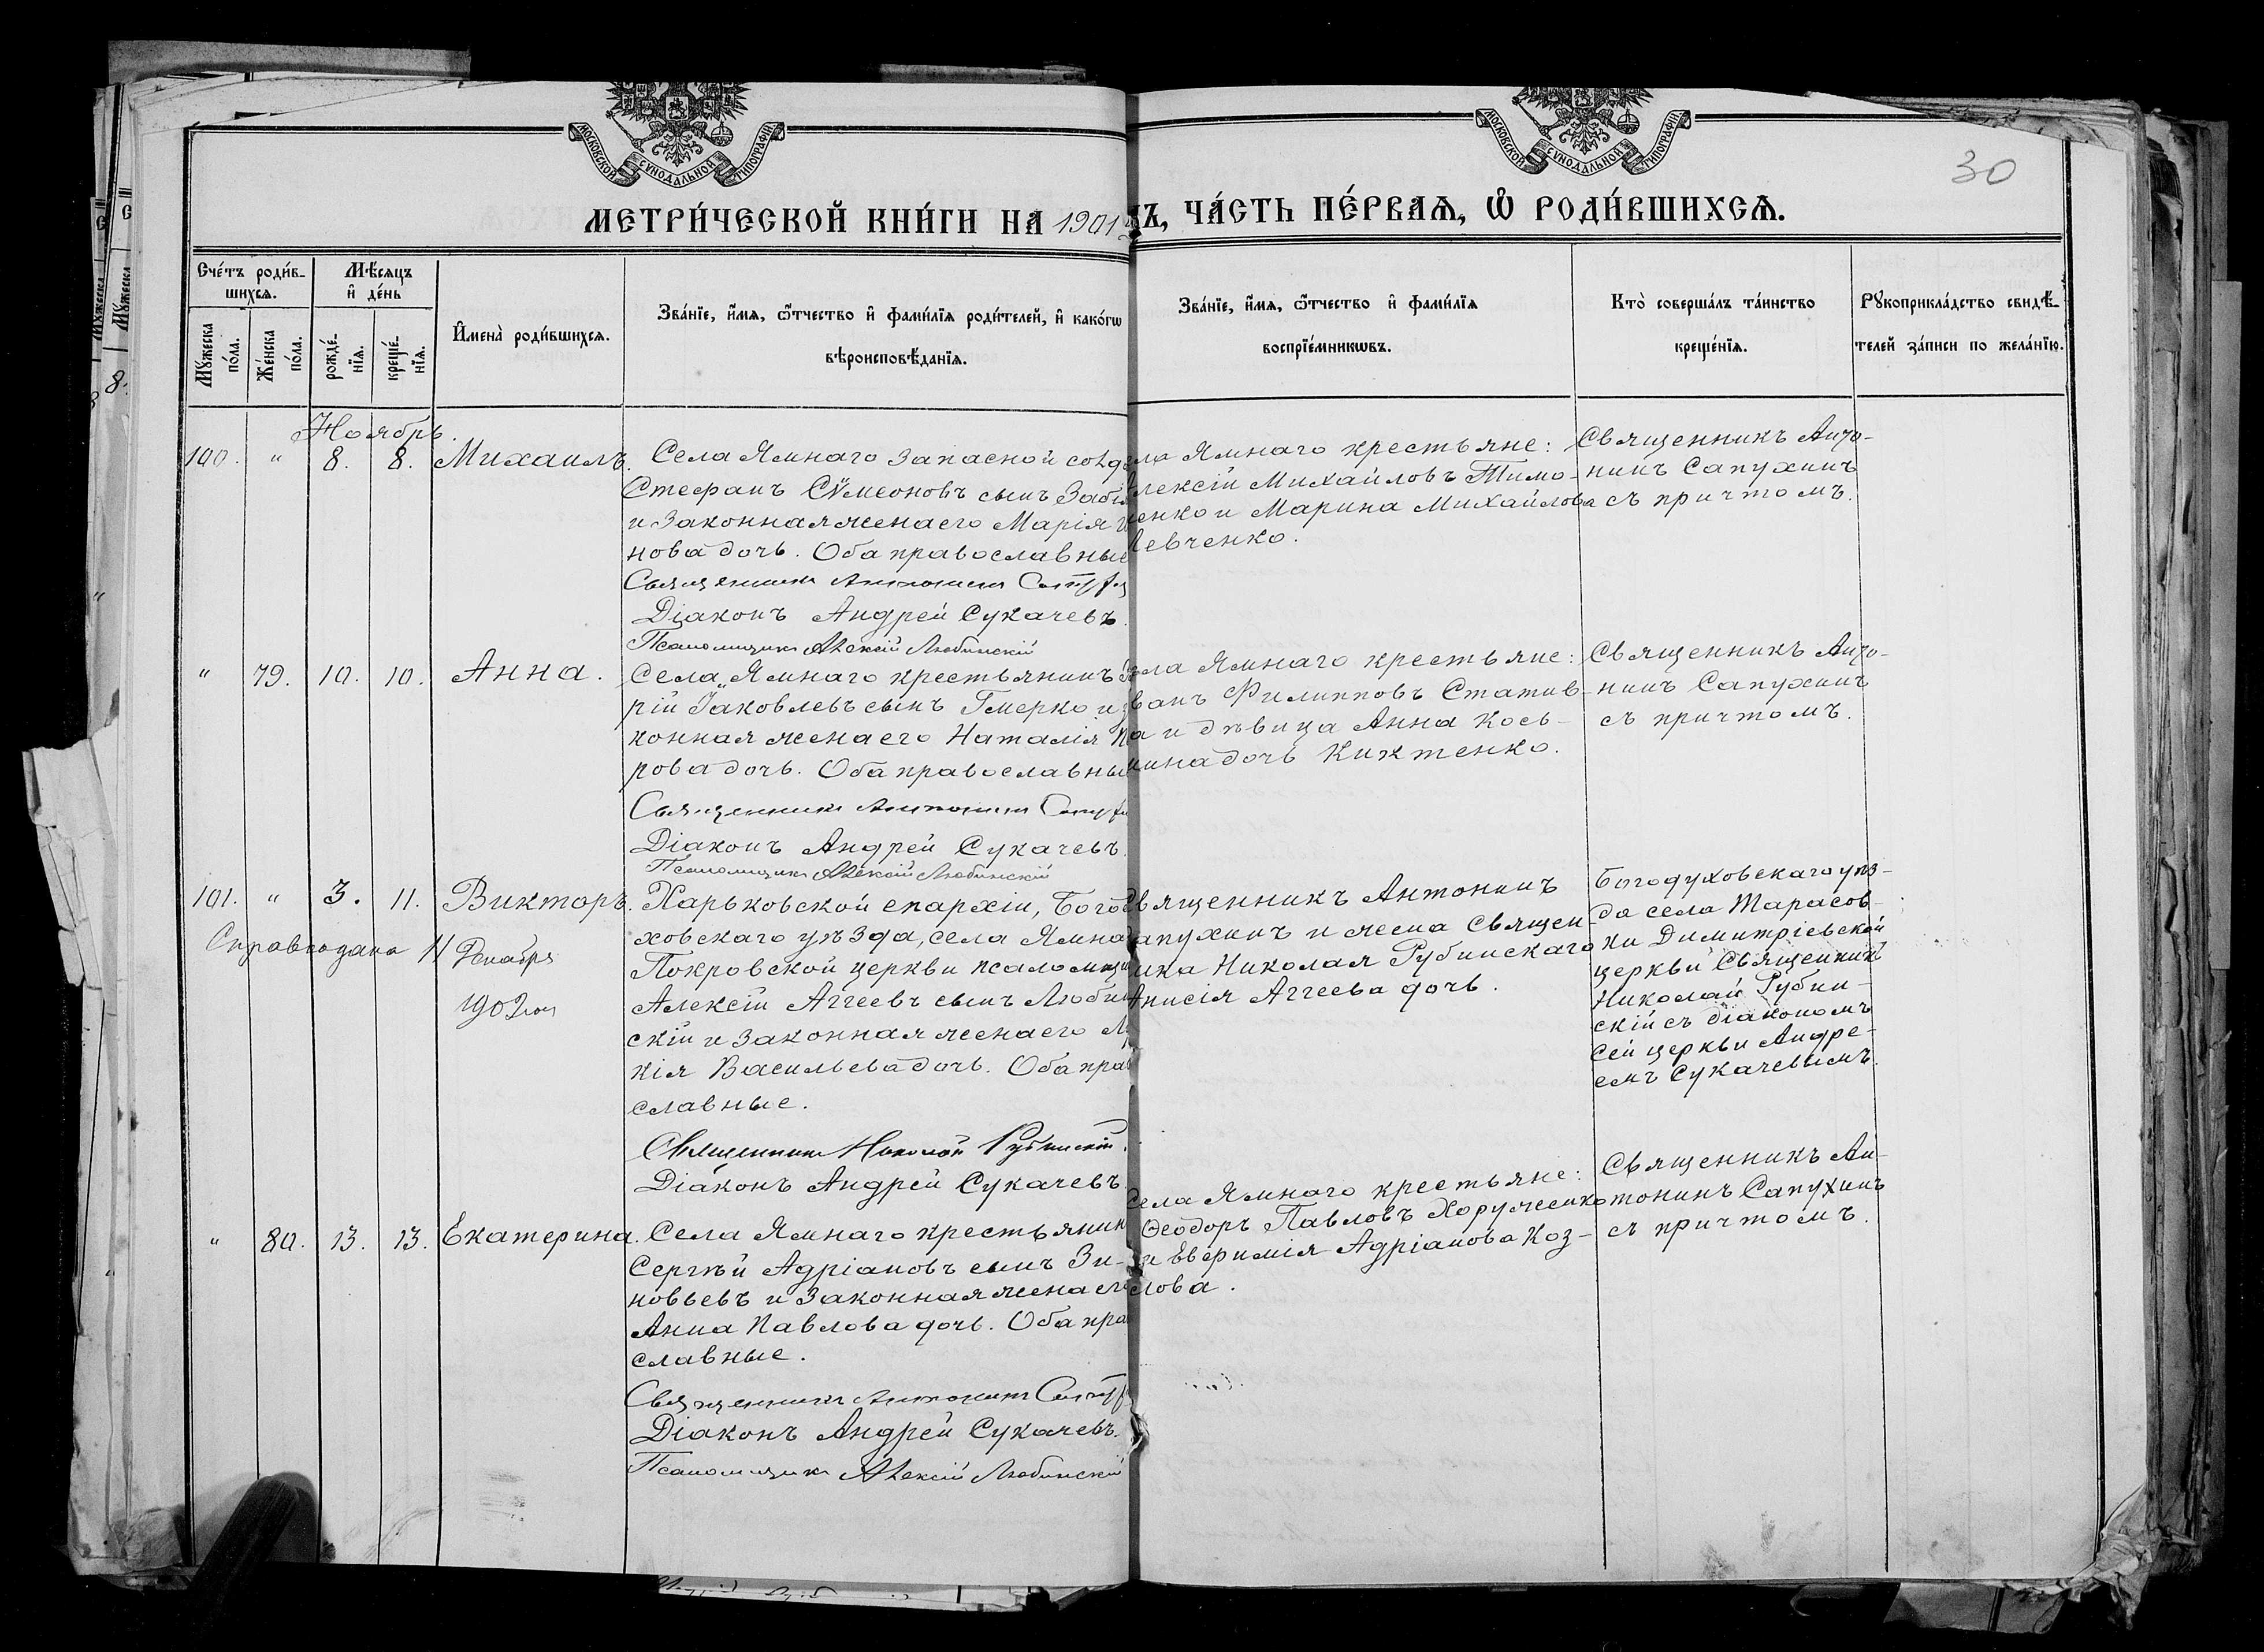 МОСКОВСКОЙ СѴНОДАЛЬНОЙ ТИПОГРАФІИ
МОСКОВСКОЙ СѴНОДАЛЬНОЙ ТИПОГРАФІИ
30
МЕТРИ́ЧЕСКОЙ КНИ́ГИ НА 1901 ДЪ, ЧА́СТЬ ПЕ́РВАѦ, Ѡ҆ РОДИ́ВШИХСѦ.
Сче́тъ роди́в-
шихсѧ.
Мꙋ́жеска
по́ла.
Же́нска
по́ла.
Мѣ́сѧцъ
и҆ де́нь
рожде́-
нїѧ.
креще́-
нїѧ.
И҆мена̀ роди́вшихсѧ.
Зва́нїе, и҆́мѧ, ѻ҆́тчество и҆ фами́лїѧ роди́телей, и҆ како́гѡ
вѣроисповѣ́данїѧ.
Зва́нїе, и҆́мѧ, ѻ҆́тчество и҆ фами́лїѧ
воспрїе́мникѡвъ.
Кто̀ соверша́лъ та́инство
креще́нїѧ.
Рꙋкоприкла́дство свидѣ́-
телей за́писи по жела́нїю.
Ноябрь.
100. " 8. 8. Михаилъ.
Села Ямнаго запасной солд
Стефанъ Сѵмеоновъ сынъ Заб
и законная жена его Марія
нова дочь. Оба православные
Священникъ Антонинъ Сапух
Діаконъ Андрей Сукачевъ.
Псаломщикъ Алексій Любинскій
ла Ямнаго крестьяне:
лексій Михайловъ Тимо-
енко и Марина Михайлова
Левченко.
Священникъ Анто-
нинъ Сапухинъ
съ причтомъ.
" 79. 10. 10. Анна.
Села Ямнаго крестьянинъ
рій Іаковлевъ сынъ Гмерко и
конная жена его Наталія
рова дочь. Оба православны
Священникъ Антонинъ Сапух
Діаконъ Андрей Сукачевъ.
Псаломщикъ Алексій Любинскій
ла Ямнаго крестьяне:
ванъ Филипповъ Статив-
а и дѣвица Анна Кось-
мина дочь Кихтенко.
Священникъ Анто-
нинъ Сапухинъ
съ причтомъ.
101. " 3. 11. Викторъ.
Декабря
1902
Харьковской епархіи, Бого
ховскаго уѣзда, села Ямна
Покровской церкви псаломщи
Алексій Аггеевъ сынъ Люби
скій и законная жена его
кія Васильева дочь. Оба пра
славные.
Священникъ Николай Рубинскій.
Діаконъ Андрей Сукачевъ.
Священникъ Антонинъ
апухинъ и жена священ-
ика Николая Рубинскаго
Анисія Аггеева дочь.
Богодуховскаго уѣз-
да села Тарасов-
ки Димитріевской
церкви Священникъ
Николай Рубин-
скій съ діакономъ
сей церкви Андре-
емъ Сукачевымъ.
" 80. 13. 13. Екатерина.
Села Ямнаго крестьянин
Сергѣй Адріановъ сынъ Зи-
новьевъ и законная жена его
Анна Павлова дочь. Оба пра
славные.
Священникъ Антонинъ Сапух
Діаконъ Андрей Сукачевъ.
Псаломщикъ Алексій Любинскій
Села Ямнаго крестьяне:
Ѳеодоръ Павловъ Хоруженко
и Евфимія Адріанова Коз-
лова.
Священникъ Ан-
тонинъ Сапухинъ
съ причтомъ.